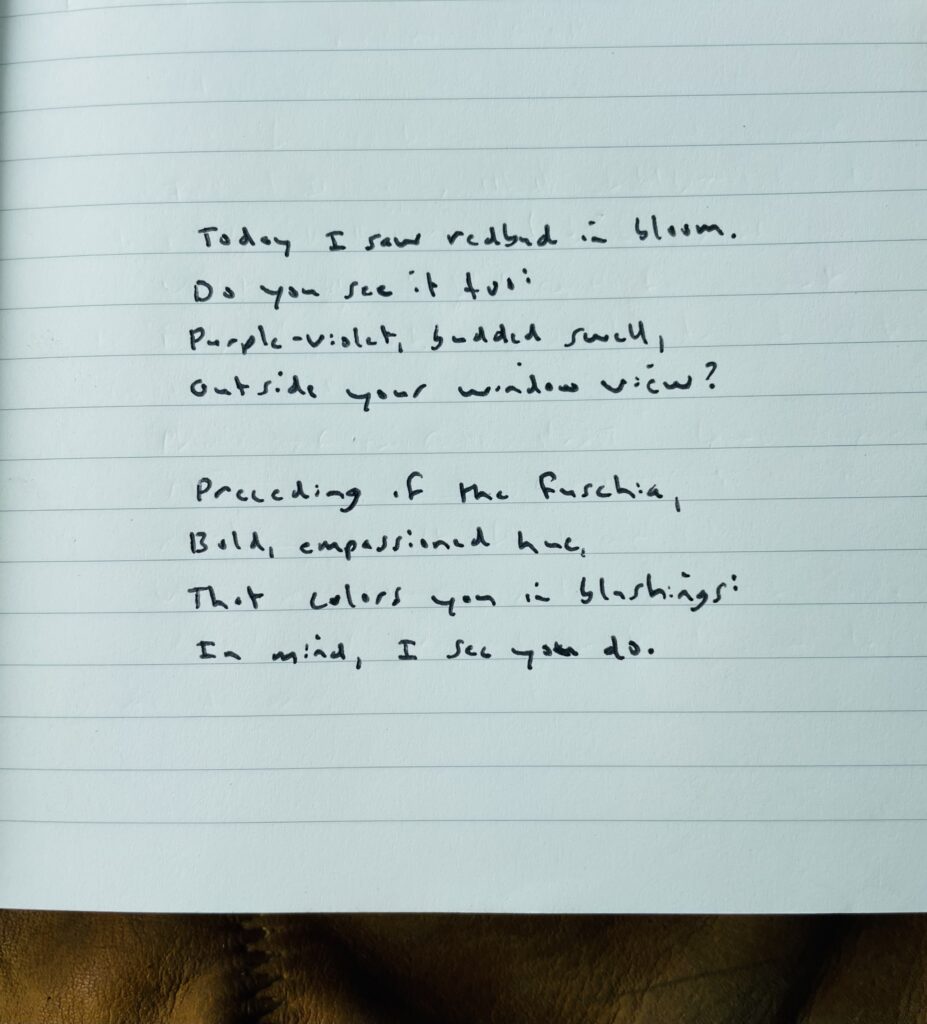 Today I saw redbud in bloom.
Do you see it too:
Purple-violet, budded swell,
Outside your window view?
Preceding of the fuschia,
Bold, empassioned hue,
That colors you in blushings:
In mind, I see you do.